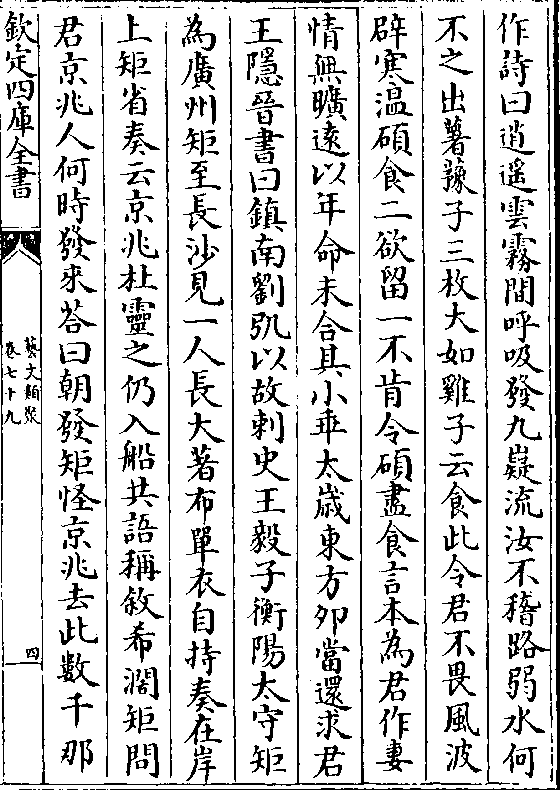 作詩曰逍遥雲霧間呼吸發九嶷流汝不稽路弱水何
不之出薯蕷子三枚大如雞子云食此令君不畏風波
辟寒温碩食二欲留一不肯令碩盡食言本為君作妻
情無曠逺以年命未合其小乖太歲東方夘當還求君
王隱晉書曰鎮南劉𢎞以故刺史王毅子衡陽太守矩
為廣州矩至長沙見一人長大著布單衣自持奏在岸
上矩省奏云京兆杜靈之仍入船共語稱敘希濶矩問
君京兆人何時發來荅曰朝發矩怪京兆去此數千那
欽定四庫全書
藝文類聚
卷七十九
四